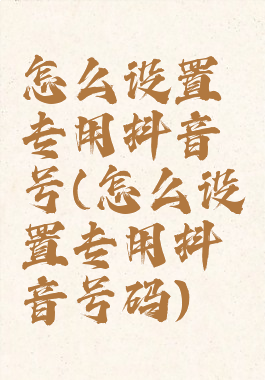 怎么设置
专用抖音
号(怎么设
置专用抖
音号码)